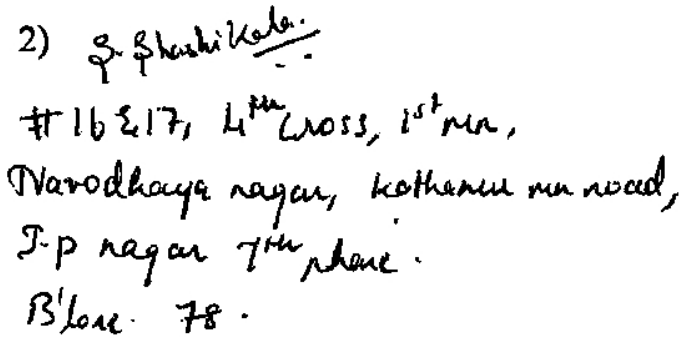 2) S. Shashikala.
#16 & 17, 4th Cross, 1st mn,
Navodhaya nagar, kothanur mn road,
J.p nagar 7th phase.
B'lore. 78.